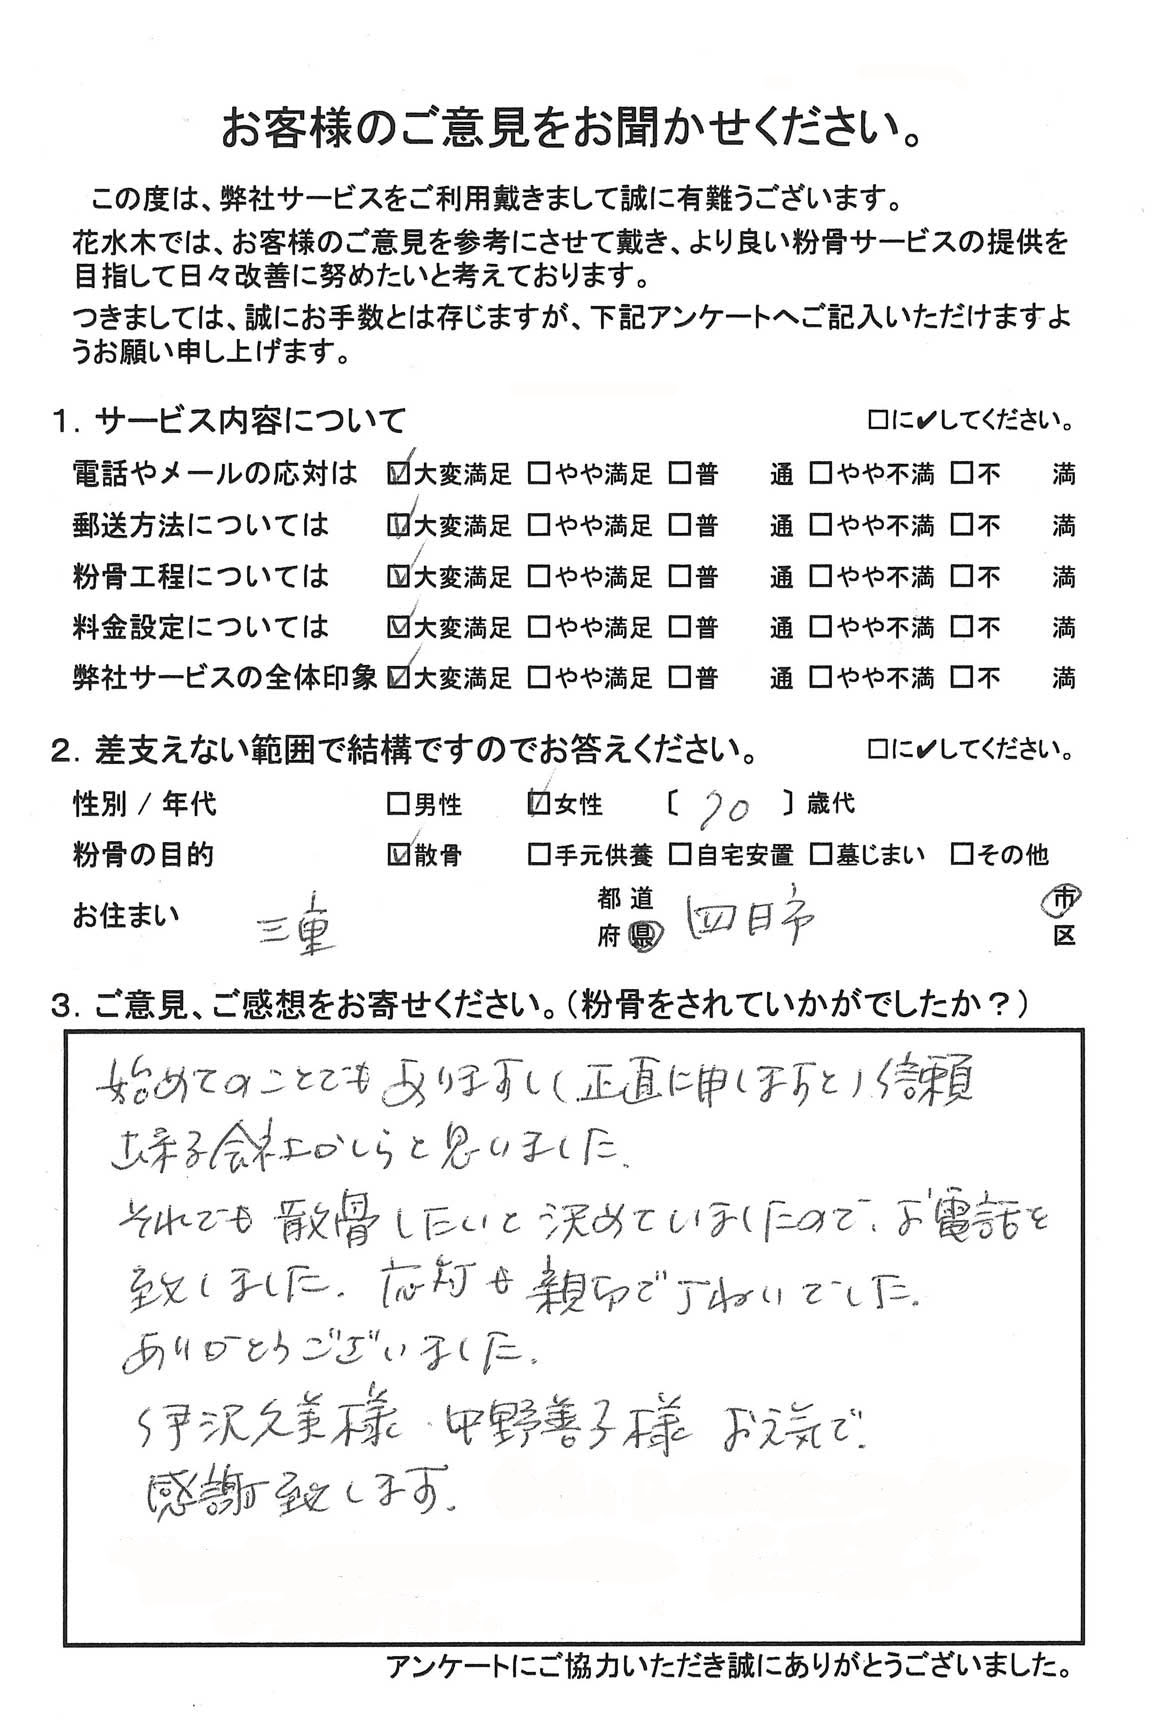 お客様のご意見をお聞かせください。
この度は、弊社サービスをご利用戴きまして誠に有難うございます。
花水木では、お客様のご意見を参考にさせて戴き、より良い粉骨サービスの提供を
目指して日々改善に努めたいと考えております。
つきましては、誠にお手数とは存じますが、下記アンケートへご記入いただけますよ
うお願い申し上げます。
1. サービス内容について □に✔してください。
電話やメールの応対は ☑大変満足 □やや満足 □普 通 □やや不満 □不 満
郵送方法については ☑大変満足 □やや満足 □普 通 □やや不満 □不 満
粉骨工程については ☑大変満足 □やや満足 □普 通 □やや不満 □不 満
料金設定については ☑大変満足 □やや満足 □普 通 □やや不満 □不 満
弊社サービスの全体印象 ☑大変満足 □やや満足 □普 通 □やや不満 □不 満
2. 差支えない範囲で結構ですのでお答えください。 □に✔してください。
性別 / 年代 □男性 ☑女性 〔 70 〕歳代
粉骨の目的 ☑散骨 □手元供養 □自宅安置 □墓じまい □その他
お住まい 三重 都道府県 四日市 市区
3. ご意見、ご感想をお寄せください。（粉骨をされていかがでしたか？）
始めてのことでもありますし（正直に申しますと）信頼
出来る会社かしらと思いました。
それでも散骨したいと決めていましたので、お電話を
致しました。応対も親切で丁ねいでした。
ありがとうございました。
伊沢久美様・中野善子様 お元気で。
感謝致します。
アンケートにご協力いただき誠にありがとうございました。